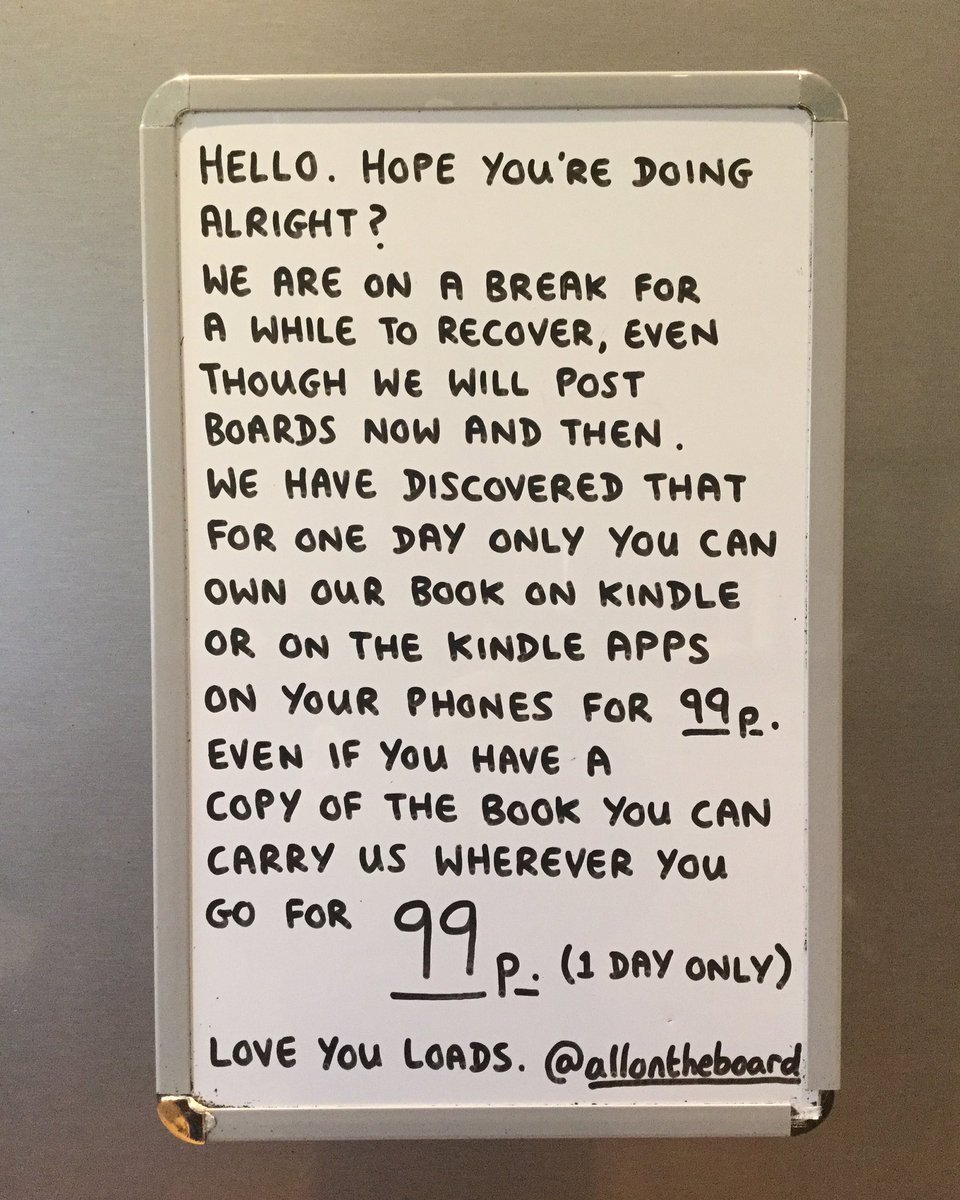 HELLO. HOPE YOU'RE DOING
ALRIGHT?
WE ARE ON A BREAK FOR
A WHILE TO RECOVER, EVEN
THOUGH WE WILL POST
BOARDS NOW AND THEN.
WE HAVE DISCOVERED THAT
FOR ONE DAY ONLY YOU CAN
OWN OUR BOOK ON KINDLE
OR ON THE KINDLE APPS
ON YOUR PHONES FOR 99p.
EVEN IF YOU HAVE A
COPY OF THE BOOK YOU CAN
CARRY US WHEREVER YOU
GO FOR 99p. (1 DAY ONLY)
LOVE YOU LOADS. @allontheboard